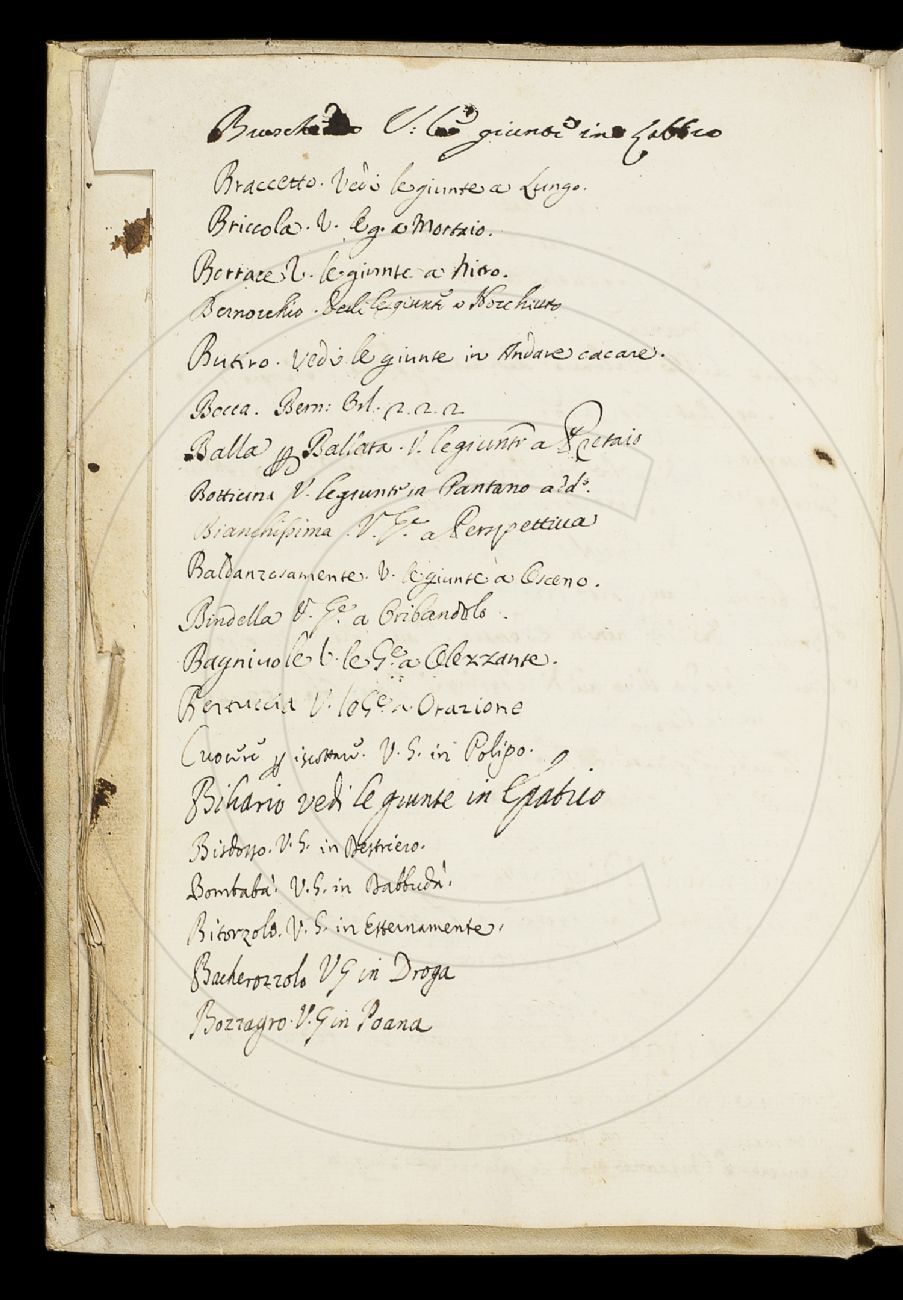 V: le giunte in Labbro
Braccetto. Vedi le giunte a Lungo.
Briccola. V. le g. a Mortaio.
Borrace V. le giunte a Nitro.
Bernocchio. Vedi le giunte a Nocchiuto
Butiro. Vedi le giunte in Andare cacare.
Bocca. Bern: Orl. 2. 2. 2
Balla p Ballata. V. le giunte a Pretaio
Botticina V. le giunte in Pantano a d.º
Bianchissima. V. Ge. a Perspettiva
Baldanzosamente. V. le giunte a Osceno.
Bindella V. Ge. a Oribandolo.
Bagnivole V. le Ge. a Olezzante.
Bertuccia V. le Ge. a Orazione
V. G. in Polipo.
Biliario vedi le giunte in Epatico
Bisdosso. V. G. in Destriero.
Bombababà. V. G. in Babbudà.
Bitorzolo. V. G. in Esternamente.
Bacherozzolo V G in Droga
Bozzagro. V. G in Poana